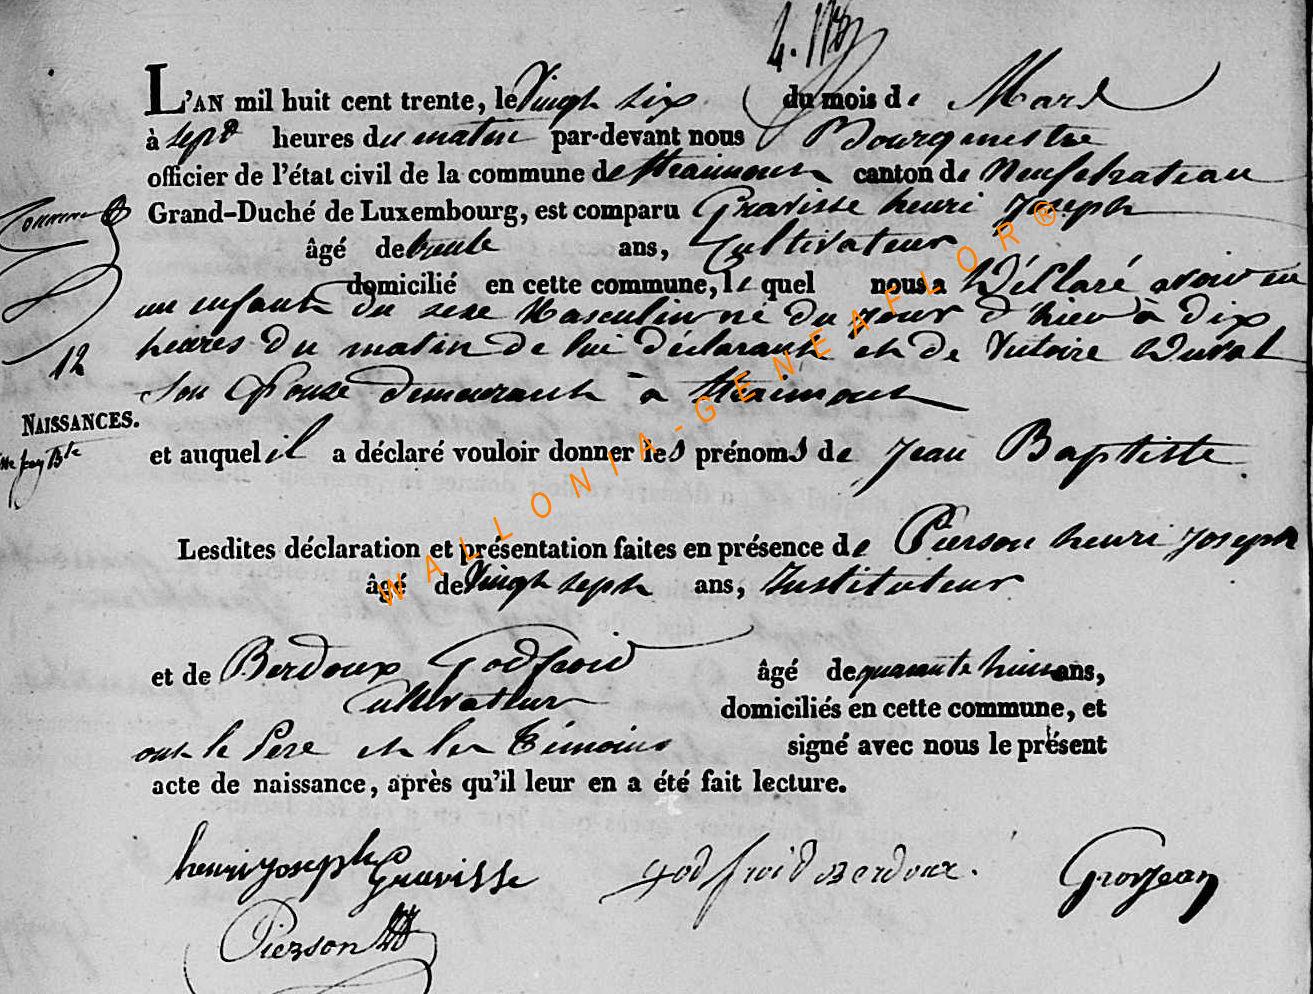 L'AN mil huit cent trente, le Vingt six du mois de Mars
à sept heures du matin par-devant nous Bourgmestre
officier de l'état civil de la commune de Straimont canton de Neufchateau
Grand-Duché de Luxembourg, est comparu Gravisse henri Joseph
âgé de trente ans, Cultivateur
domicilié en cette commune, le quel nous a Déclaré avoir eu
un enfant du sexe Masculin né du jour d'hier à dix
heures du matin de lui déclarant et de Victoire Duval
Son Epouse demeurant à Straimont
12
NAISSANCES.
et auquel il a déclaré vouloir donner les prénoms de Jean Baptiste
Lesdites déclaration et présentation faites en présence de Pierson henri Joseph
âgé de Vingt sept ans, Instituteur
et de Berdoux Godfroid âgé de quarante huit ans,
Cultivateur domiciliés en cette commune, et
ont le Pere et les Témoins signé avec nous le présent
acte de naissance, après qu'il leur en a été fait lecture.
henri joseph Gravisse Godfroid Berdoux. Grosjean
Pierson
WALLONIA-GENEAFLOR®